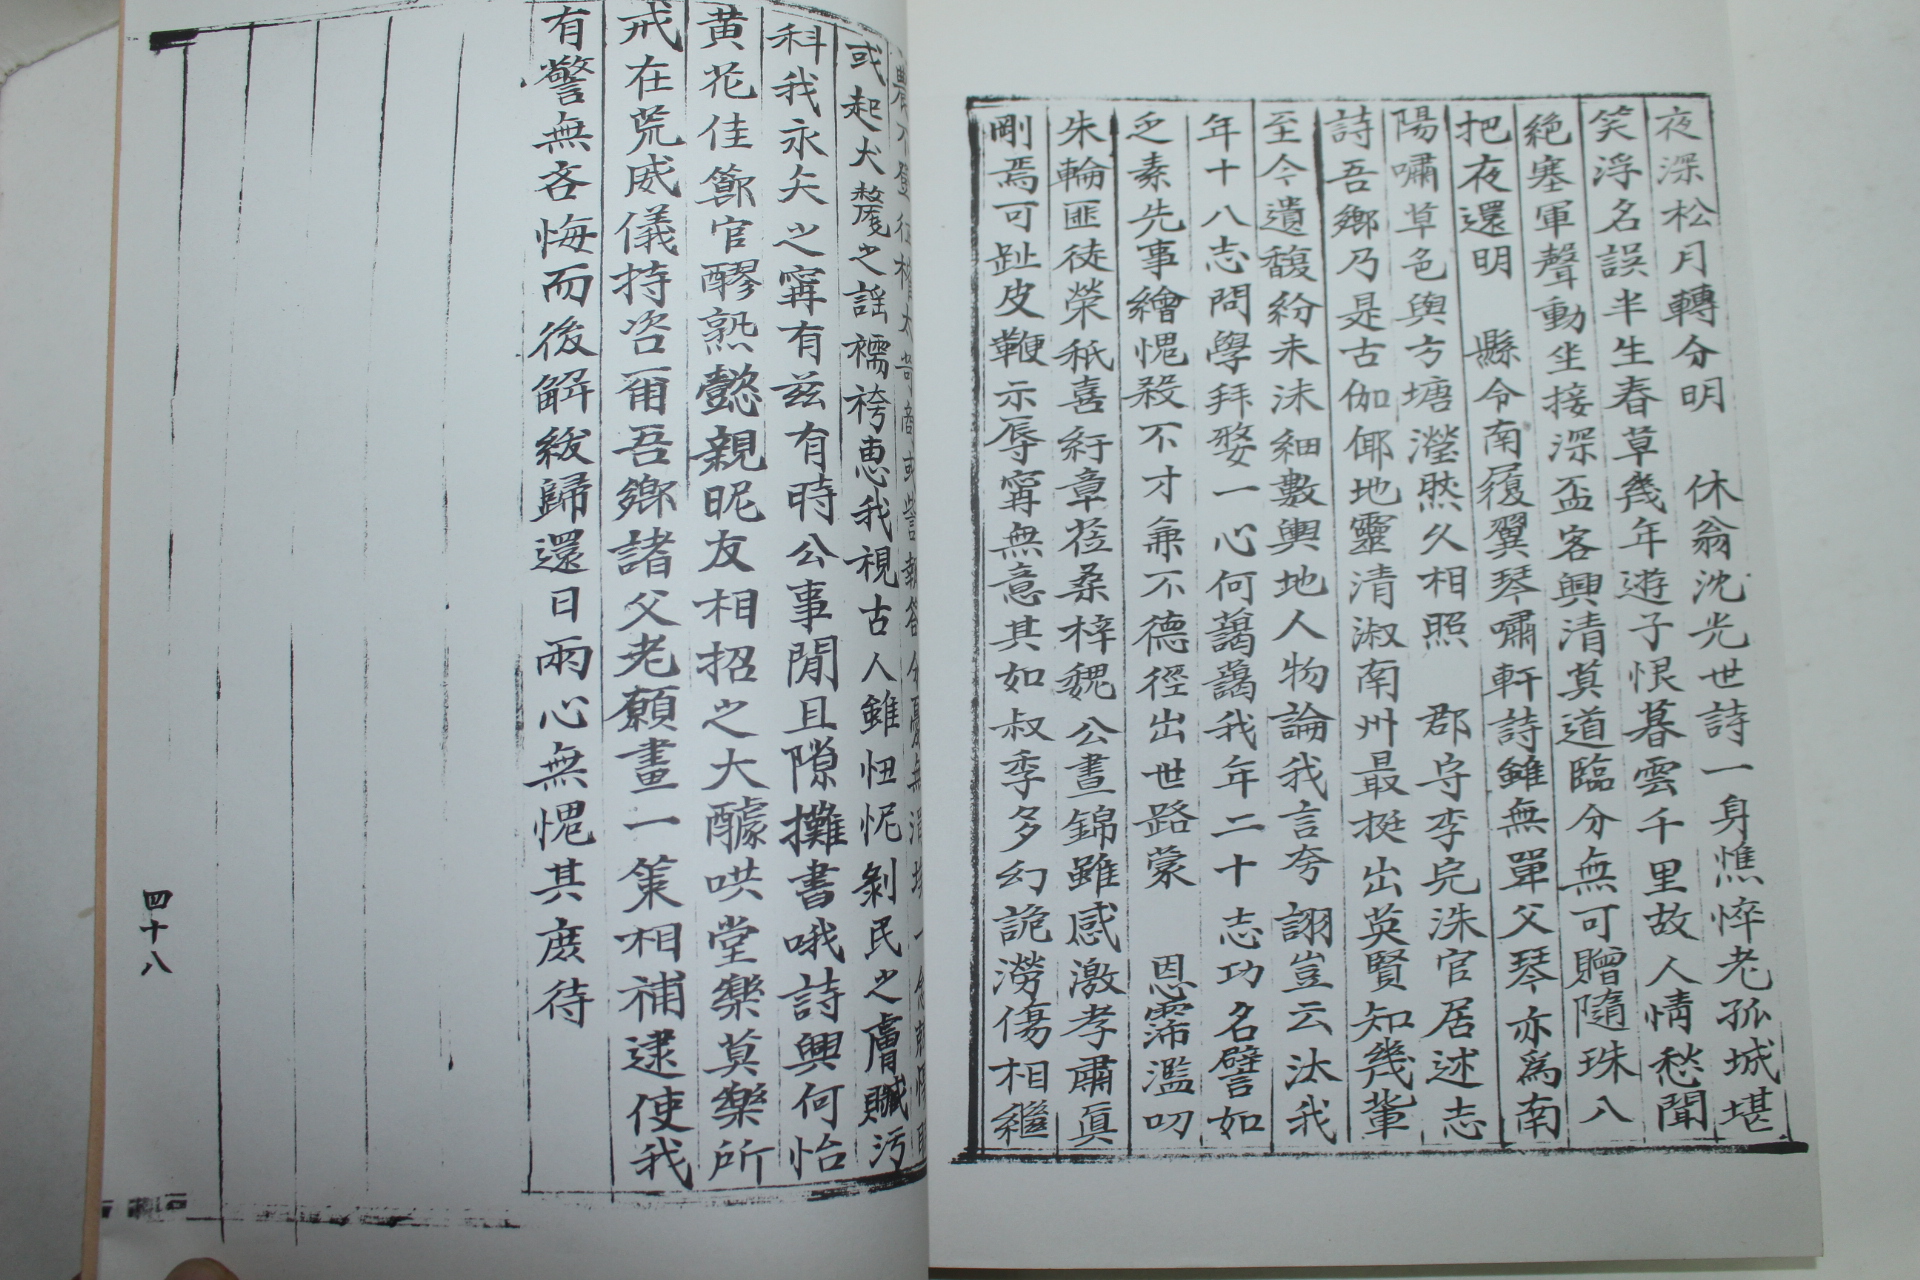 夜深松月轉分明　休翁沈光世詩一身憔悴老孤城堪
笑浮名誤半生春草幾年遊子恨暮雲千里故人情愁聞
絶塞軍聲動坐接深盃客興清莫道臨分無可贈隨珠八
把夜還明　縣令南履翼琴嘯軒詩雖無單父琴亦爲南
陽嘯草色與方塘瀅然久相照　郡守李完洙官居述志
詩吾鄉乃是古伽倻地靈清淑南州最挺出英賢知幾輩
至今遺馥紛未沬細數輿地人物論我言夸詡豈云汰我
年十八志問學拜婺一心何藹藹我年二十志功名譬如
乏素先事繪愧殺不才兼不德徑出世路蒙　恩霈濫叨
朱輪匪徒榮秖喜紆章莅桑梓魏公晝錦雖感激孝肅眞
剛焉可趾皮鞭示辱寗無意其如叔季多幻詭澇傷相繼
或起犬氂之謠襦袴惠我視古人雖忸怩剝民之膚贓汚
科我永矢之寗有玆有時公事閒且隙攤書哦詩興何怡
黄花佳節官醪熟懿親昵友相招之大醵哄堂樂莫樂所
戒在荒威儀持咨爾吾鄉諸父老願畫一策相補逮使我
有警無吝悔而後解紱歸還日兩心無愧其庶待
四十八